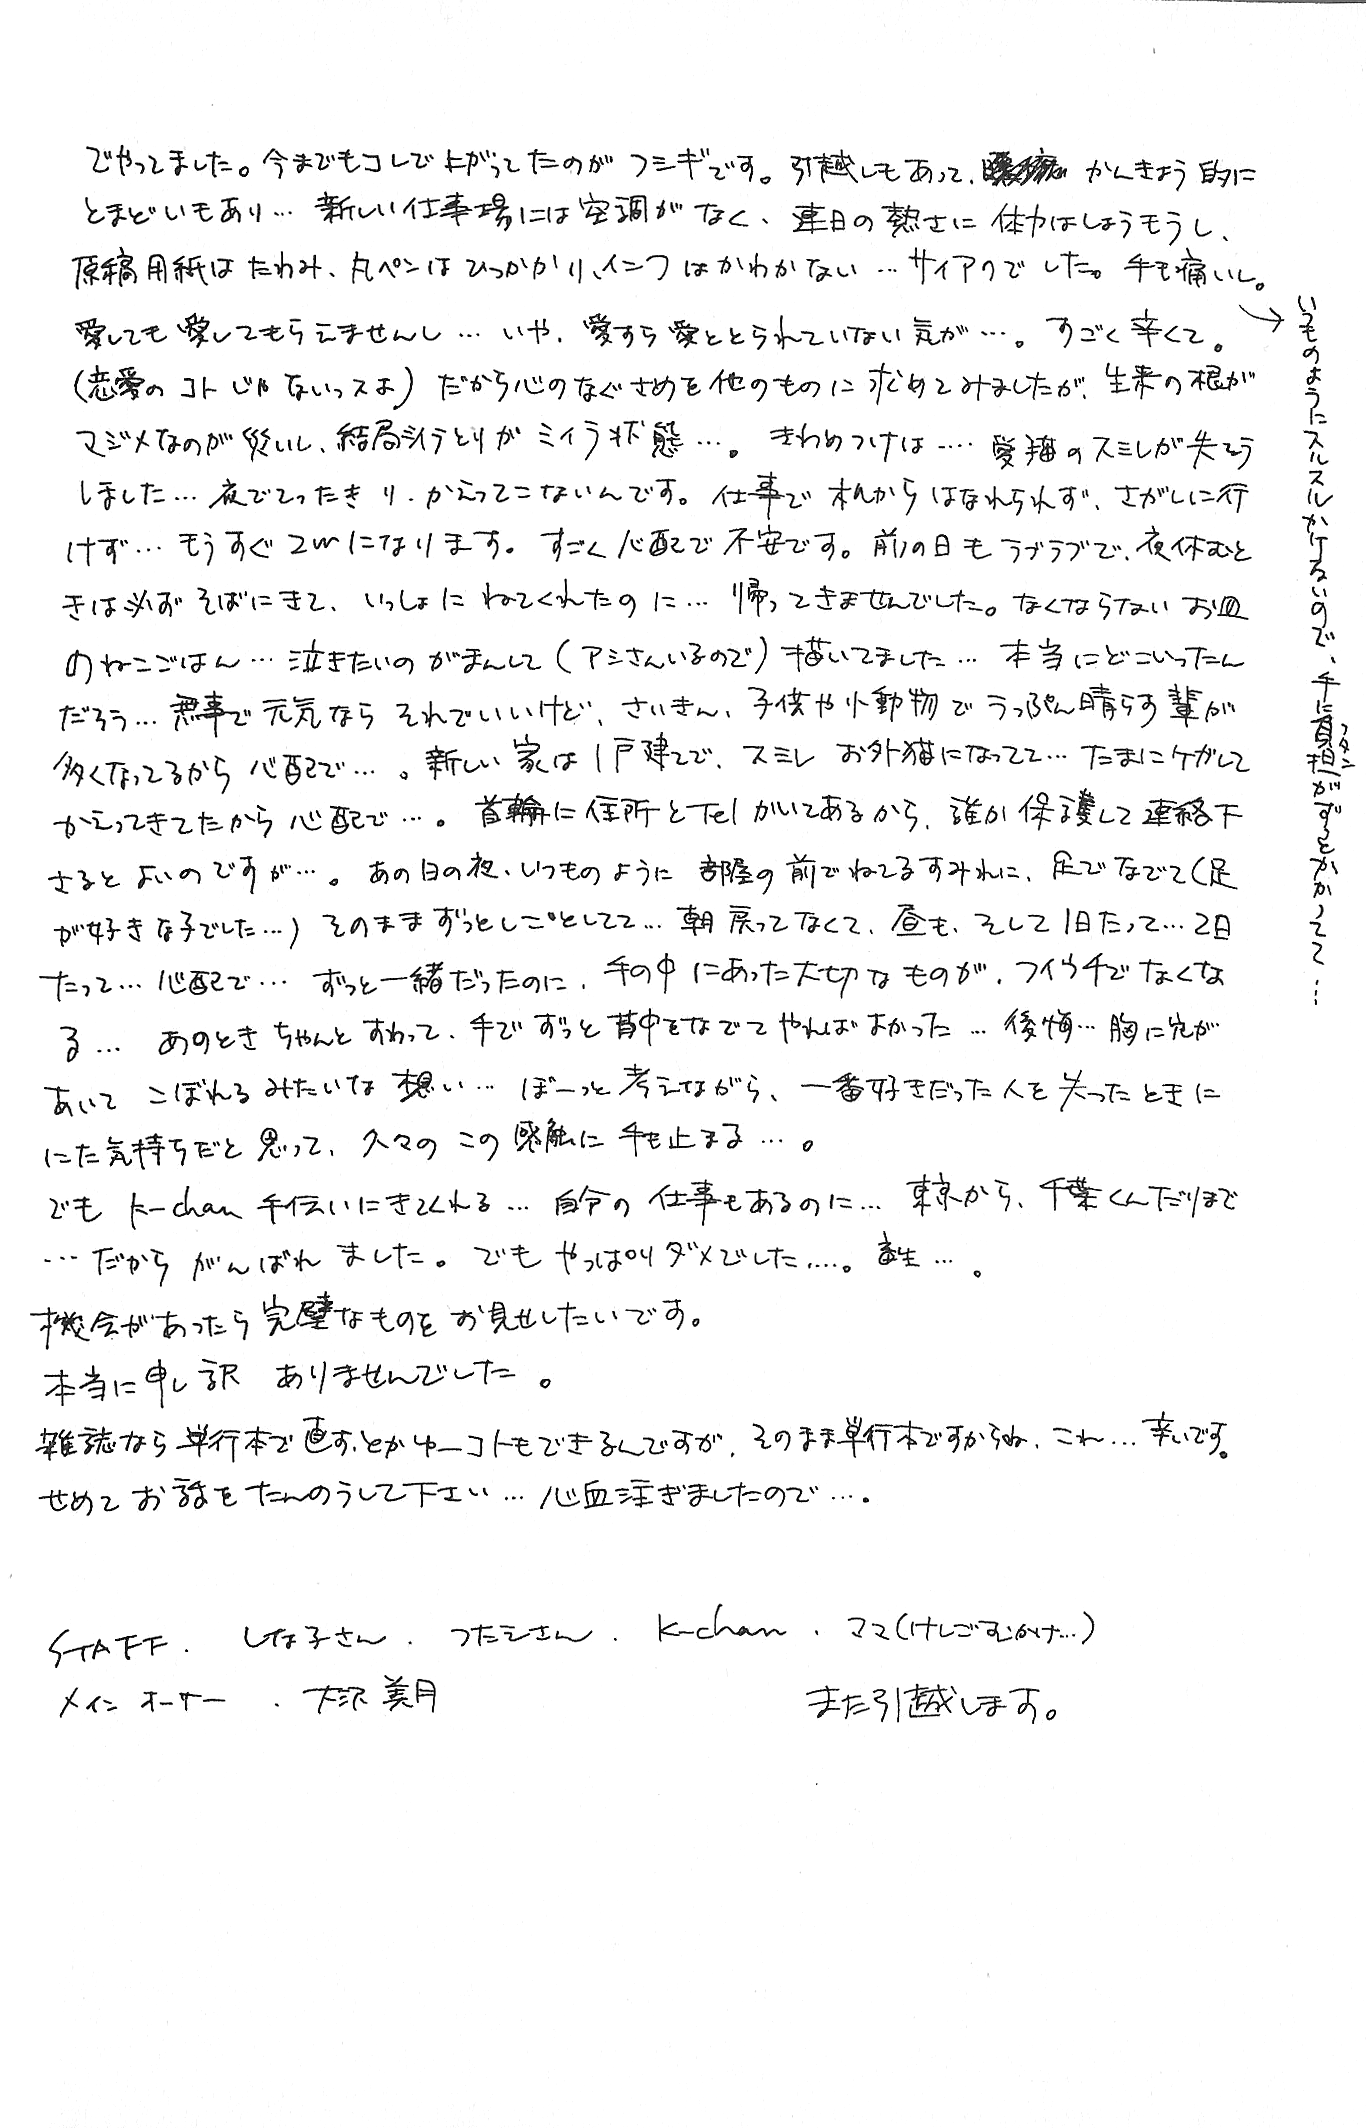 でやってました。今までもコレで上がってたのがフシギです。引越しもあって、かんきょう的に
とまどいもあり… 新しい仕事場には空調がなく、連日の熱さに体力はしょうもうし、
原稿用紙はたわみ、丸ペンはひっかかり、インクはかわかない…サイアクでした。手も痛いし。
→いつものようにスルスルかけないので、手に負担フタンがずっとかかってて…
愛しても愛してもらえませんし… いや、愛すら愛ととられていない気が…。すごく辛くて。
(恋愛のコトじゃないっスよ) だから心のなぐさめを他のものに求めてみましたが、生来の根が
マジメなのが災いし、結局ミイラとりがミイラ状態…。きわめつけは…. 愛猫のスミレが失そう
しました… 夜でてったきり、かえってこないんです。仕事で机からはなれられず、さがしに行
けず… もうすぐ2wになります。すごく心配で不安です。前の日もラブラブで、夜休むと
きは必ずそばにきて、いっしょにねてくれたのに… 帰ってきませんでした。なくならないお皿
のねこごはん… 泣きたいのがまんして(アシさんいるので)描いてました… 本当にどこいったん
だろう… 無事で元気ならそれでいいけど、さいきん、子供や小動物でうっぷん晴らす輩が
多くなってるから心配で…。新しい家は1戸建てで、スミレお外猫になってて… たまにケガして
かえってきてたから心配で…。首輪に住所とTelかいてあるから、誰か保護して連絡下
さるとよいのですが…。あの日の夜、いつものように部屋の前でねてるすみれに、足でなでて(足
が好きな子でした…)そのままずっとしごとしてて… 朝戻ってなくて、昼も、そして1日たって… 2日
たって… 心配で… ずっと一緒だったのに、手の中にあった大切なものが、フイウチでなくな
る… あのときちゃんとすわって、手でずっと背中をなでてやればよかった… 後悔… 胸に穴が
あいてこぼれるみたいな想い… ぼーっと考えながら、一番好きだった人を失ったときに
にた気持ちだと思って、久々のこの感触に手も止まる…。
でもK-chan手伝いにきてくれる… 自分の仕事もあるのに… 東京から、千葉くんだりまで
…だからがんばれました。でもやっぱりダメでした….。…。
機会があったら完璧なものをお見せしたいです。
本当に申し訳ありませんでした。
雑誌なら単行本で直す、とかゆーコトもできるんですが、そのまま単行本ですからね、これ… 辛いです。
せめてお話をたんのうして下さい… 心血注ぎましたので…。
STAFF. しな子さん. つたえさん. K-chan. ママ(けしごむかけ…)
メインオーサー. 大沢美月
また引越します。